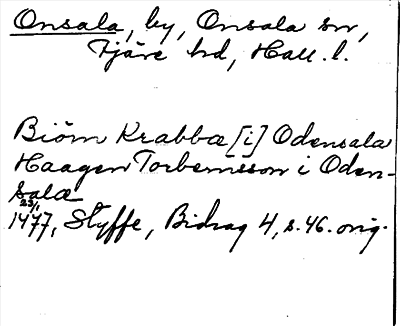 Onsala, by, Onsala sn,
Fjäre hd, Hall. l.
Biörn Krabbæ [i] Odensala
Haagen Torbernsson i Oden-
sala
23/1
1477, Styffe, Bidrag 4, s. 46. orig.